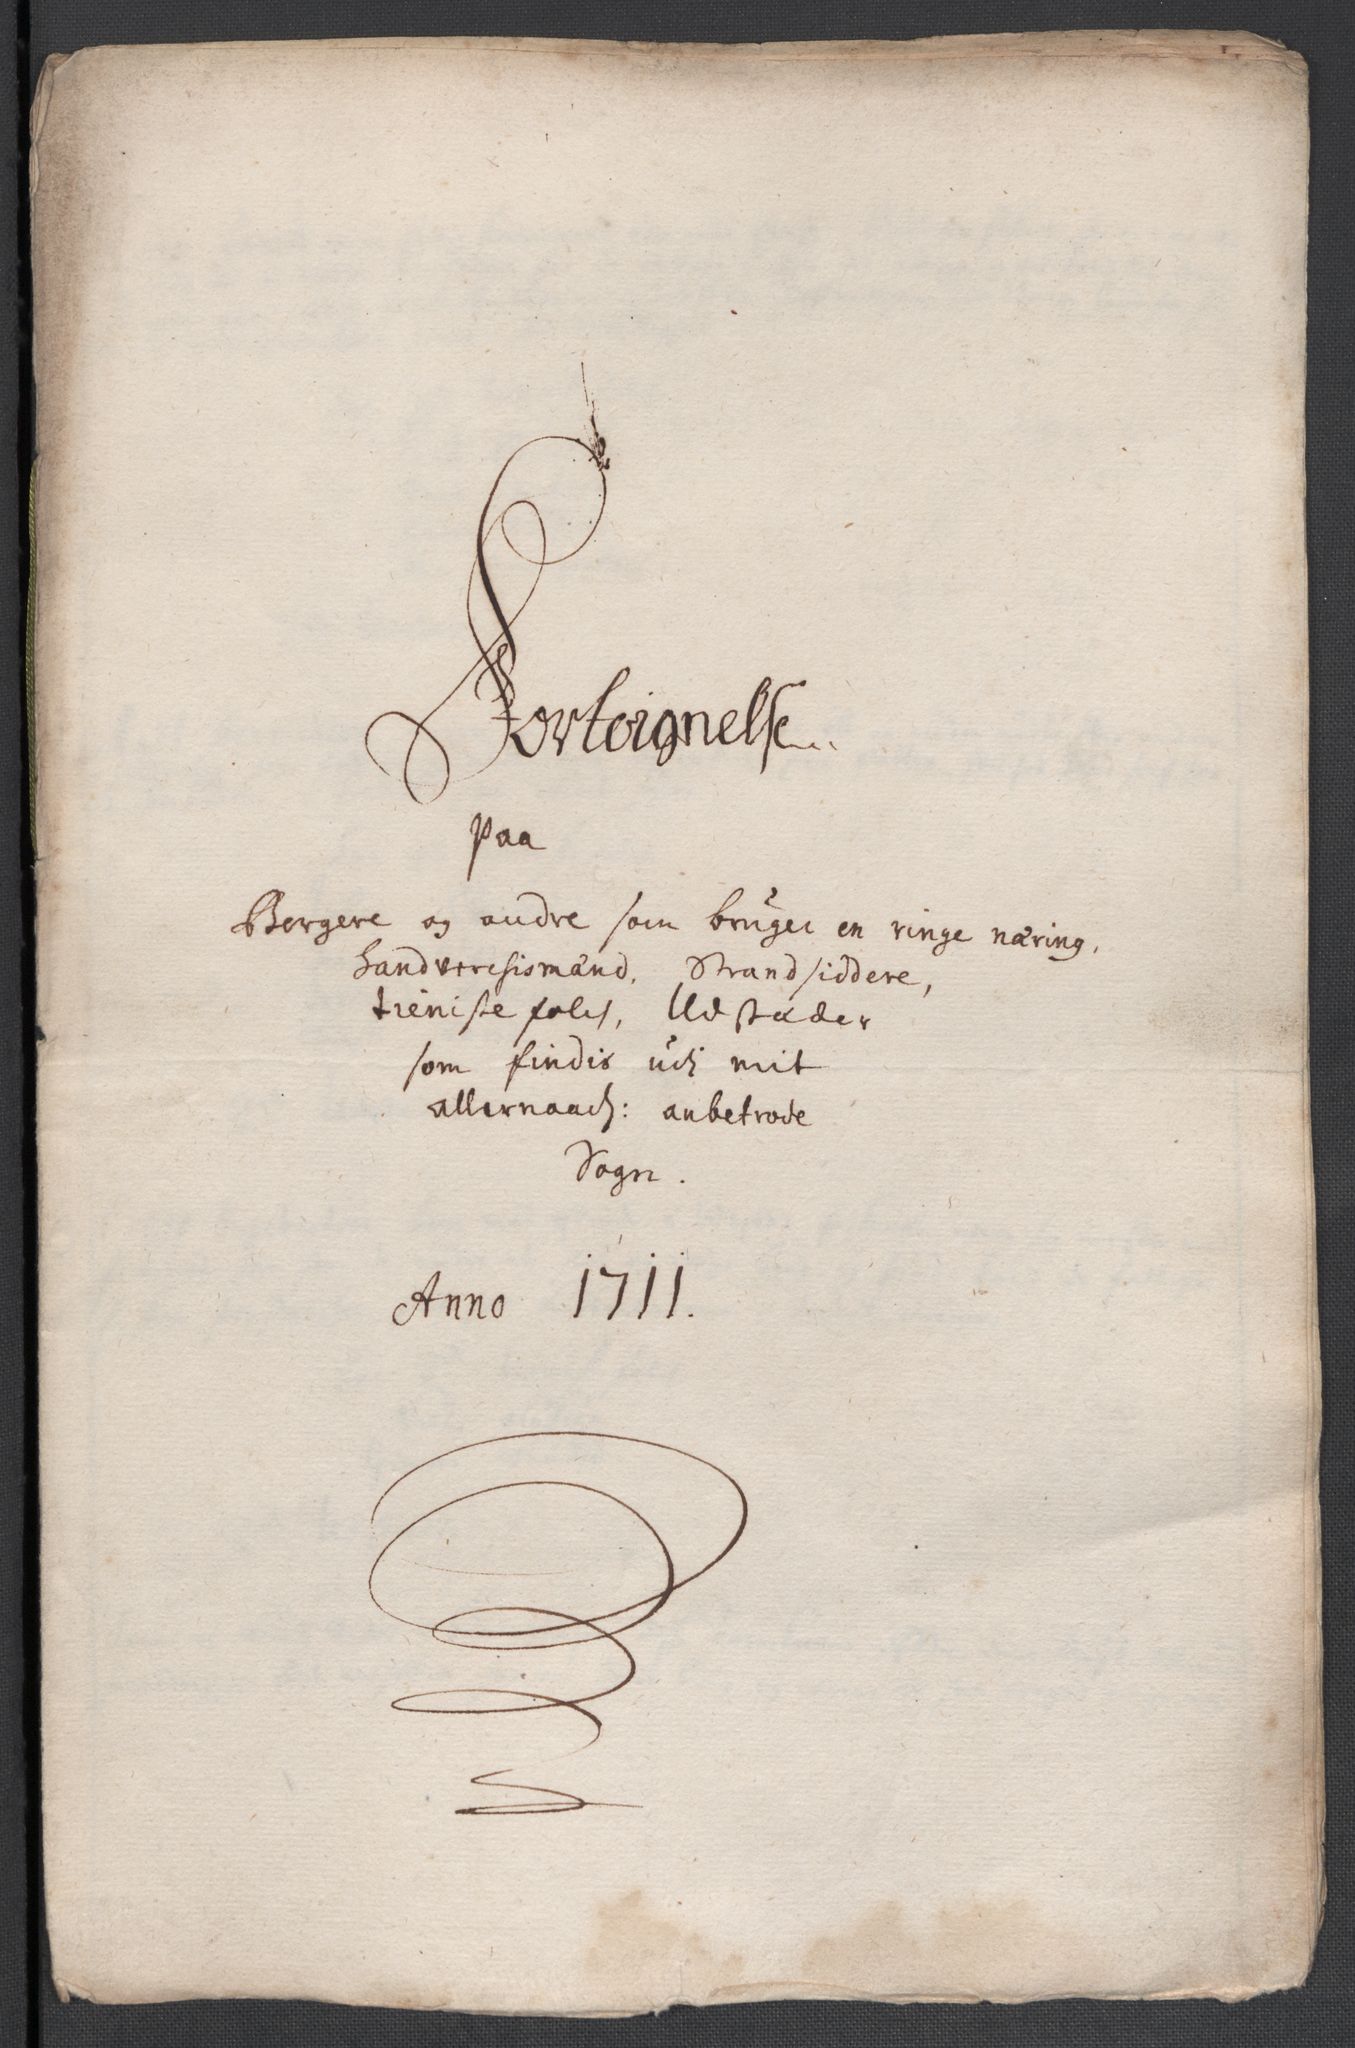 Forteignelse
Paa
Borgere og andre som bruger en ringe næring,
handvercksmænd, Strandsiddere,
tieniste folck, Udstæder
som findis udj mit
allernaad: anbetrode
Sogn.
Anno 1711.